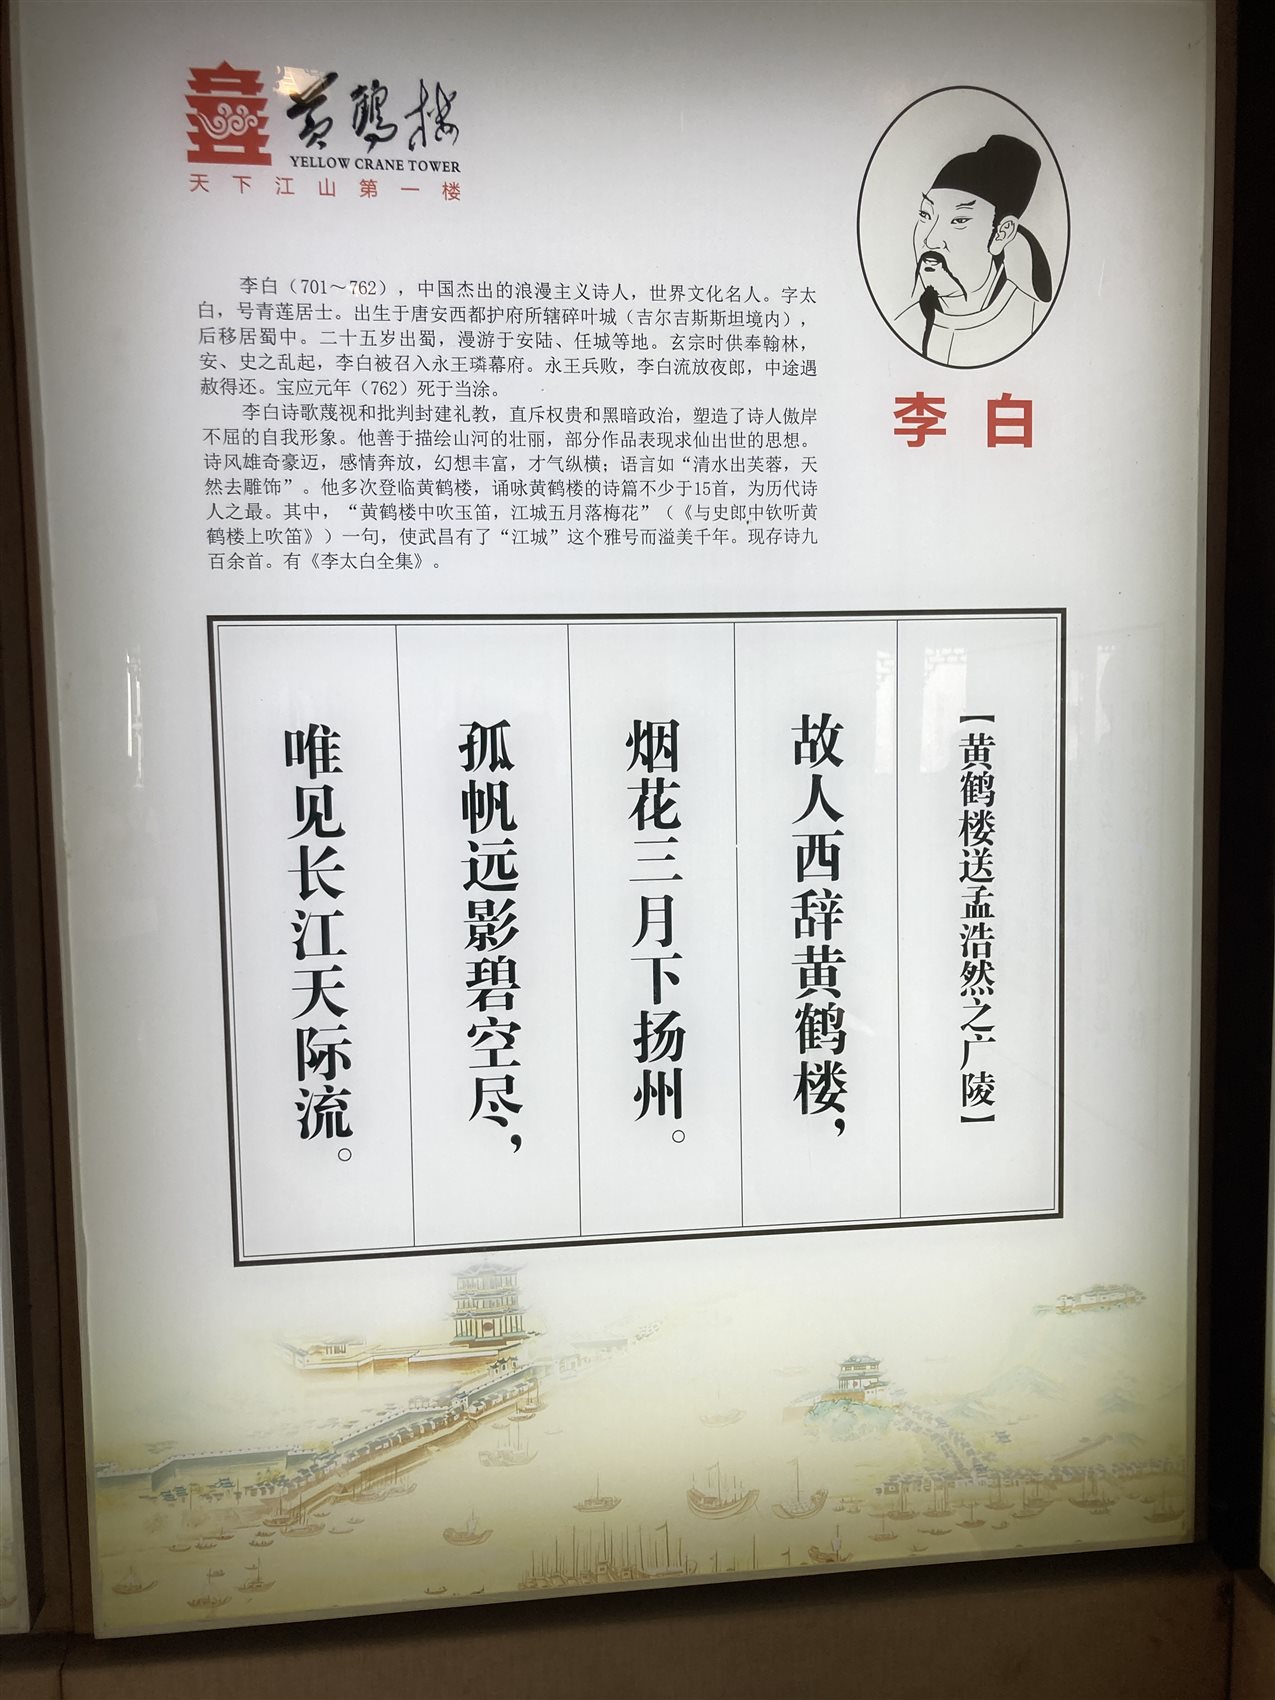 黄鹤楼
YELLOW CRANE TOWER
天下江山第一楼
李白
李白（701～762），中国杰出的浪漫主义诗人，世界文化名人。字太
白，号青莲居士。出生于唐安西都护府所辖碎叶城（吉尔吉斯斯坦境内），
后移居蜀中。二十五岁出蜀，漫游于安陆、任城等地。玄宗时供奉翰林，
安、史之乱起，李白被召入永王璘幕府。永王兵败，李白流放夜郎，中途遇
赦得还。宝应元年（762）死于当涂。
李白诗歌蔑视和批判封建礼教，直斥权贵和黑暗政治，塑造了诗人傲岸
不屈的自我形象。他善于描绘山河的壮丽，部分作品表现求仙出世的思想。
诗风雄奇豪迈，感情奔放，幻想丰富，才气纵横；语言如“清水出芙蓉，天
然去雕饰”。他多次登临黄鹤楼，诵咏黄鹤楼的诗篇不少于15首，为历代诗
人之最。其中，“黄鹤楼中吹玉笛，江城五月落梅花”（《与史郎中钦听黄
鹤楼上吹笛》）一句，使武昌有了“江城”这个雅号而溢美千年。现存诗九
百余首。有《李太白全集》。
【黄鹤楼送孟浩然之广陵】
故人西辞黄鹤楼，
烟花三月下扬州。
孤帆远影碧空尽，
唯见长江天际流。